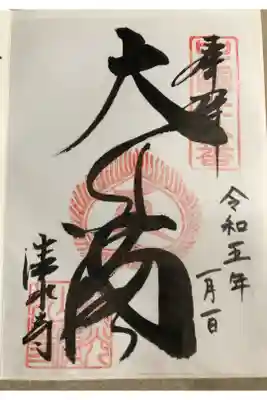 奉拝
令和五年
一月一日
大悲閣
清水寺